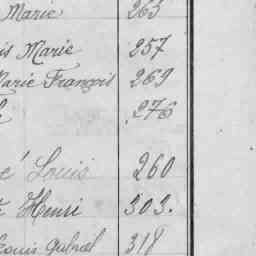 Marie 263
is Marie 257
Marie François 269
276
é Louis 260
Henri 303.
Louis Gabriel 318